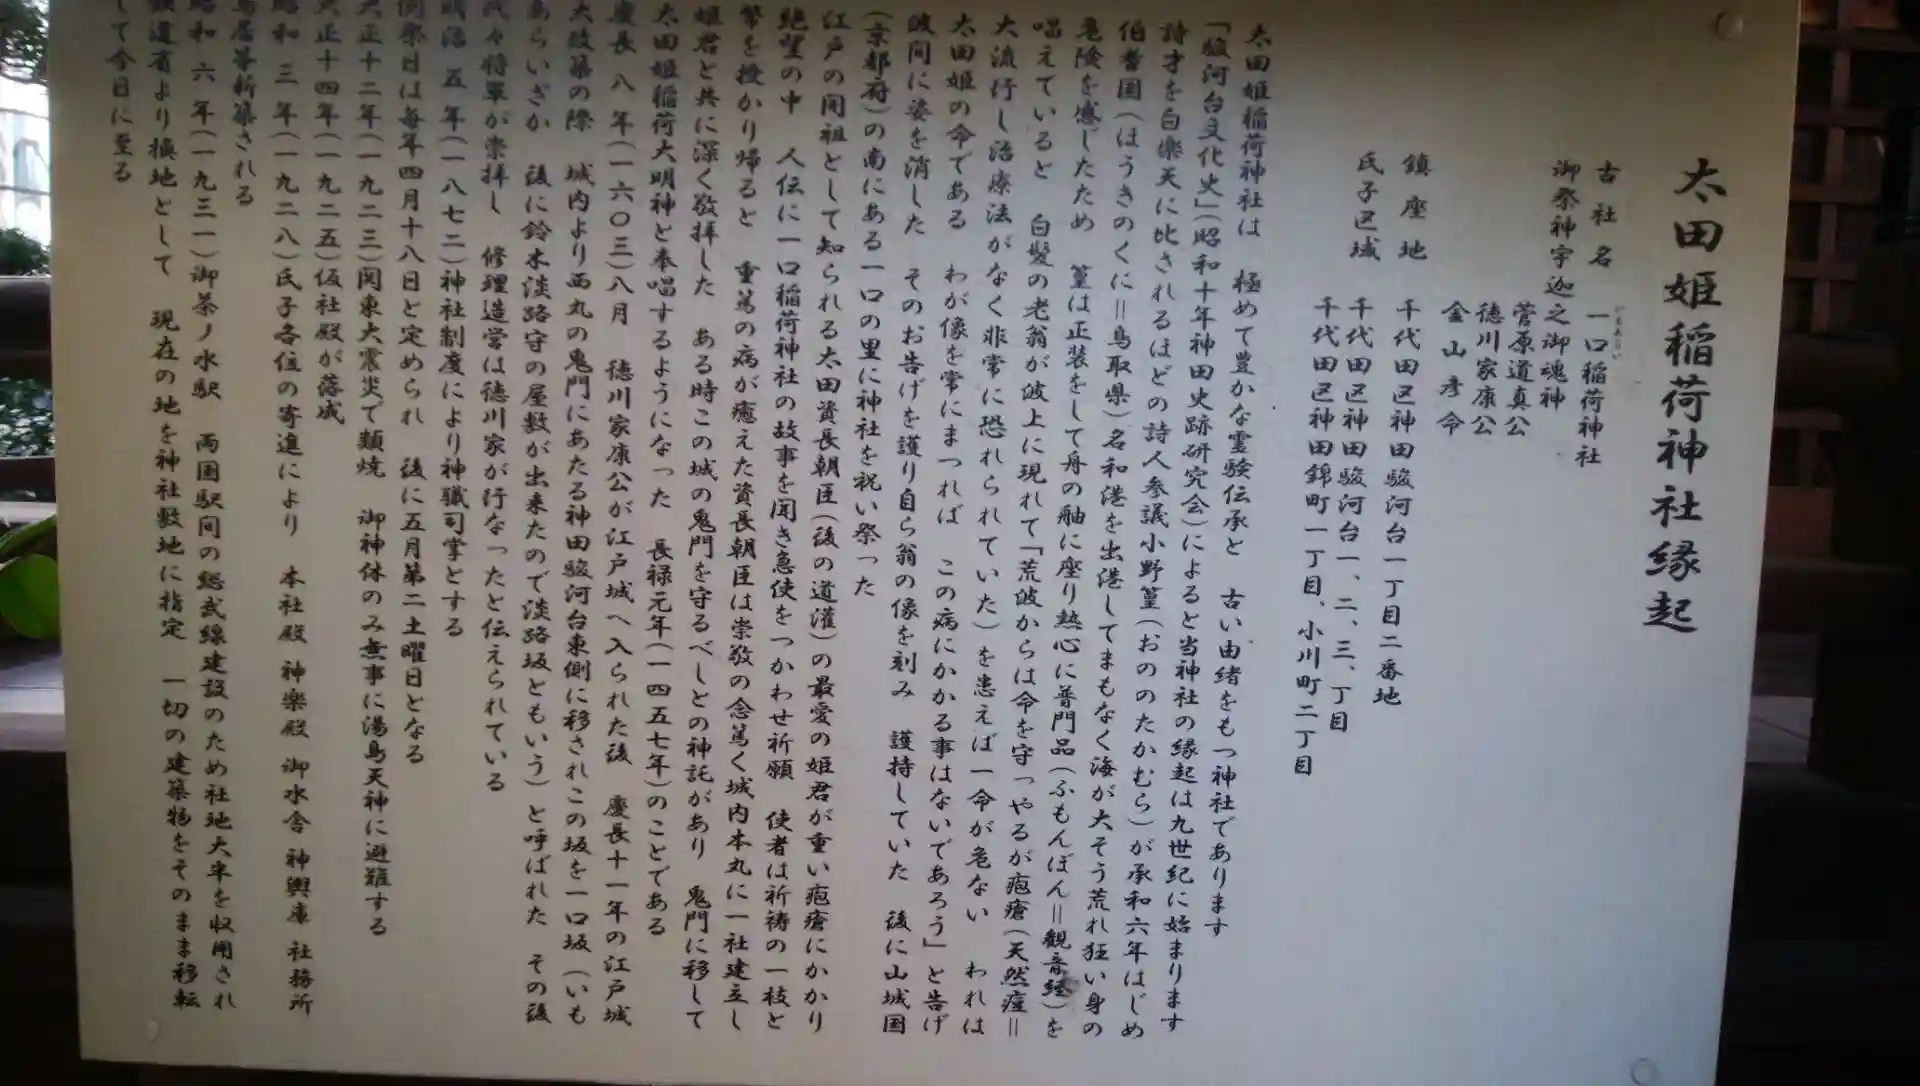 太田姫稲荷神社縁起
古社名　一口稲荷神社
いもあらい
御祭神宇迦之御魂神
菅原道真公
徳川家康公
金山彦命
鎮座地　千代田区神田駿河台一丁目二番地
氏子区域　千代田区神田駿河台一、二、三、丁目
千代田区神田錦町一丁目、小川町二丁目
太田姫稲荷神社は　極めて豊かな霊験伝承と　古い由緒をもつ神社であります
「駿河台文化史」(昭和十年神田史跡研究会)によると当神社の縁起は九世紀に始まります
詩才を白楽天に比されるほどの詩人参議小野篁(おののたかむら)が承和六年はじめ
伯耆国(はうきのくに＝鳥取県)名和港を出港してまもなく海が大そう荒れ狂い身の
危険を感じたため　篁は正装をして舟の舳に座り熱心に普門品(ふもんぼん＝観音経)を
唱えていると　白髪の老翁が波上に現れて「荒波からは命を守つやるが疱瘡(天然痘＝
大流行し治療法がなく非常に恐れられていた)を患えば一命が危ない　われは
太田姫の命である　わが像を常にまつれば　この病にかかる事はないであろう」と告げ
波間に姿を消した　そのお告げを護り自ら翁の像を刻み　護持していた　後に山城国
(京都府)の南にある一口の里に神社を祝い祭った
江戸の開祖として知られる太田資長朝臣(後の道灌)の最愛の姫君が重い疱瘡にかかり
絶望の中　人伝に一口稲荷神社の故事を聞き急使をつかわせ祈願　使者は祈祷の一枝と
幣を授かり帰ると　重篤の病が癒えた資長朝臣は崇敬の念篤く城内本丸に一社建立し
姫君と共に深く敬拝した　ある時この城の鬼門を守るべしとの神託があり　鬼門に移して
太田姫稲荷大明神と奉唱するようになった　長禄元年(一四五七年)のことである
慶長　八　年(一六〇三)八月　徳川家康公が江戸城へ入られた後　慶長十一年の江戸城
大改築の際　城内より西丸の鬼門にあたる神田駿河台東側に移されこの坂を一口坂(いも
あらいざか　後に鈴木淡路守の屋敷が出来たので淡路坂ともいう)と呼ばれた　その後
代々将軍が崇拝し　修理造営は徳川家が行なったと伝えられている
明治　五　年(一八七二)神社制度により神職司掌とする
例祭日は毎年四月十八日と定められ　後に五月第二土曜日となる
大正十二年(一九二三)関東大震災で類焼　御神体のみ無事に湯島天神に避難する
大正十四年(一九二五)仮社殿が落成
昭和　三　年(一九二八)氏子各位の寄進により　本社殿　神楽殿　御水舎　神輿庫　社務所
鳥居等新築される
昭和　六　年(一九三一)御茶ノ水駅　両国駅間の総武線建設のため社地大半を収用され
鉄道省より換地として　現在の地を神社敷地に指定　一切の建築物をそのまま移転
して今日に至る